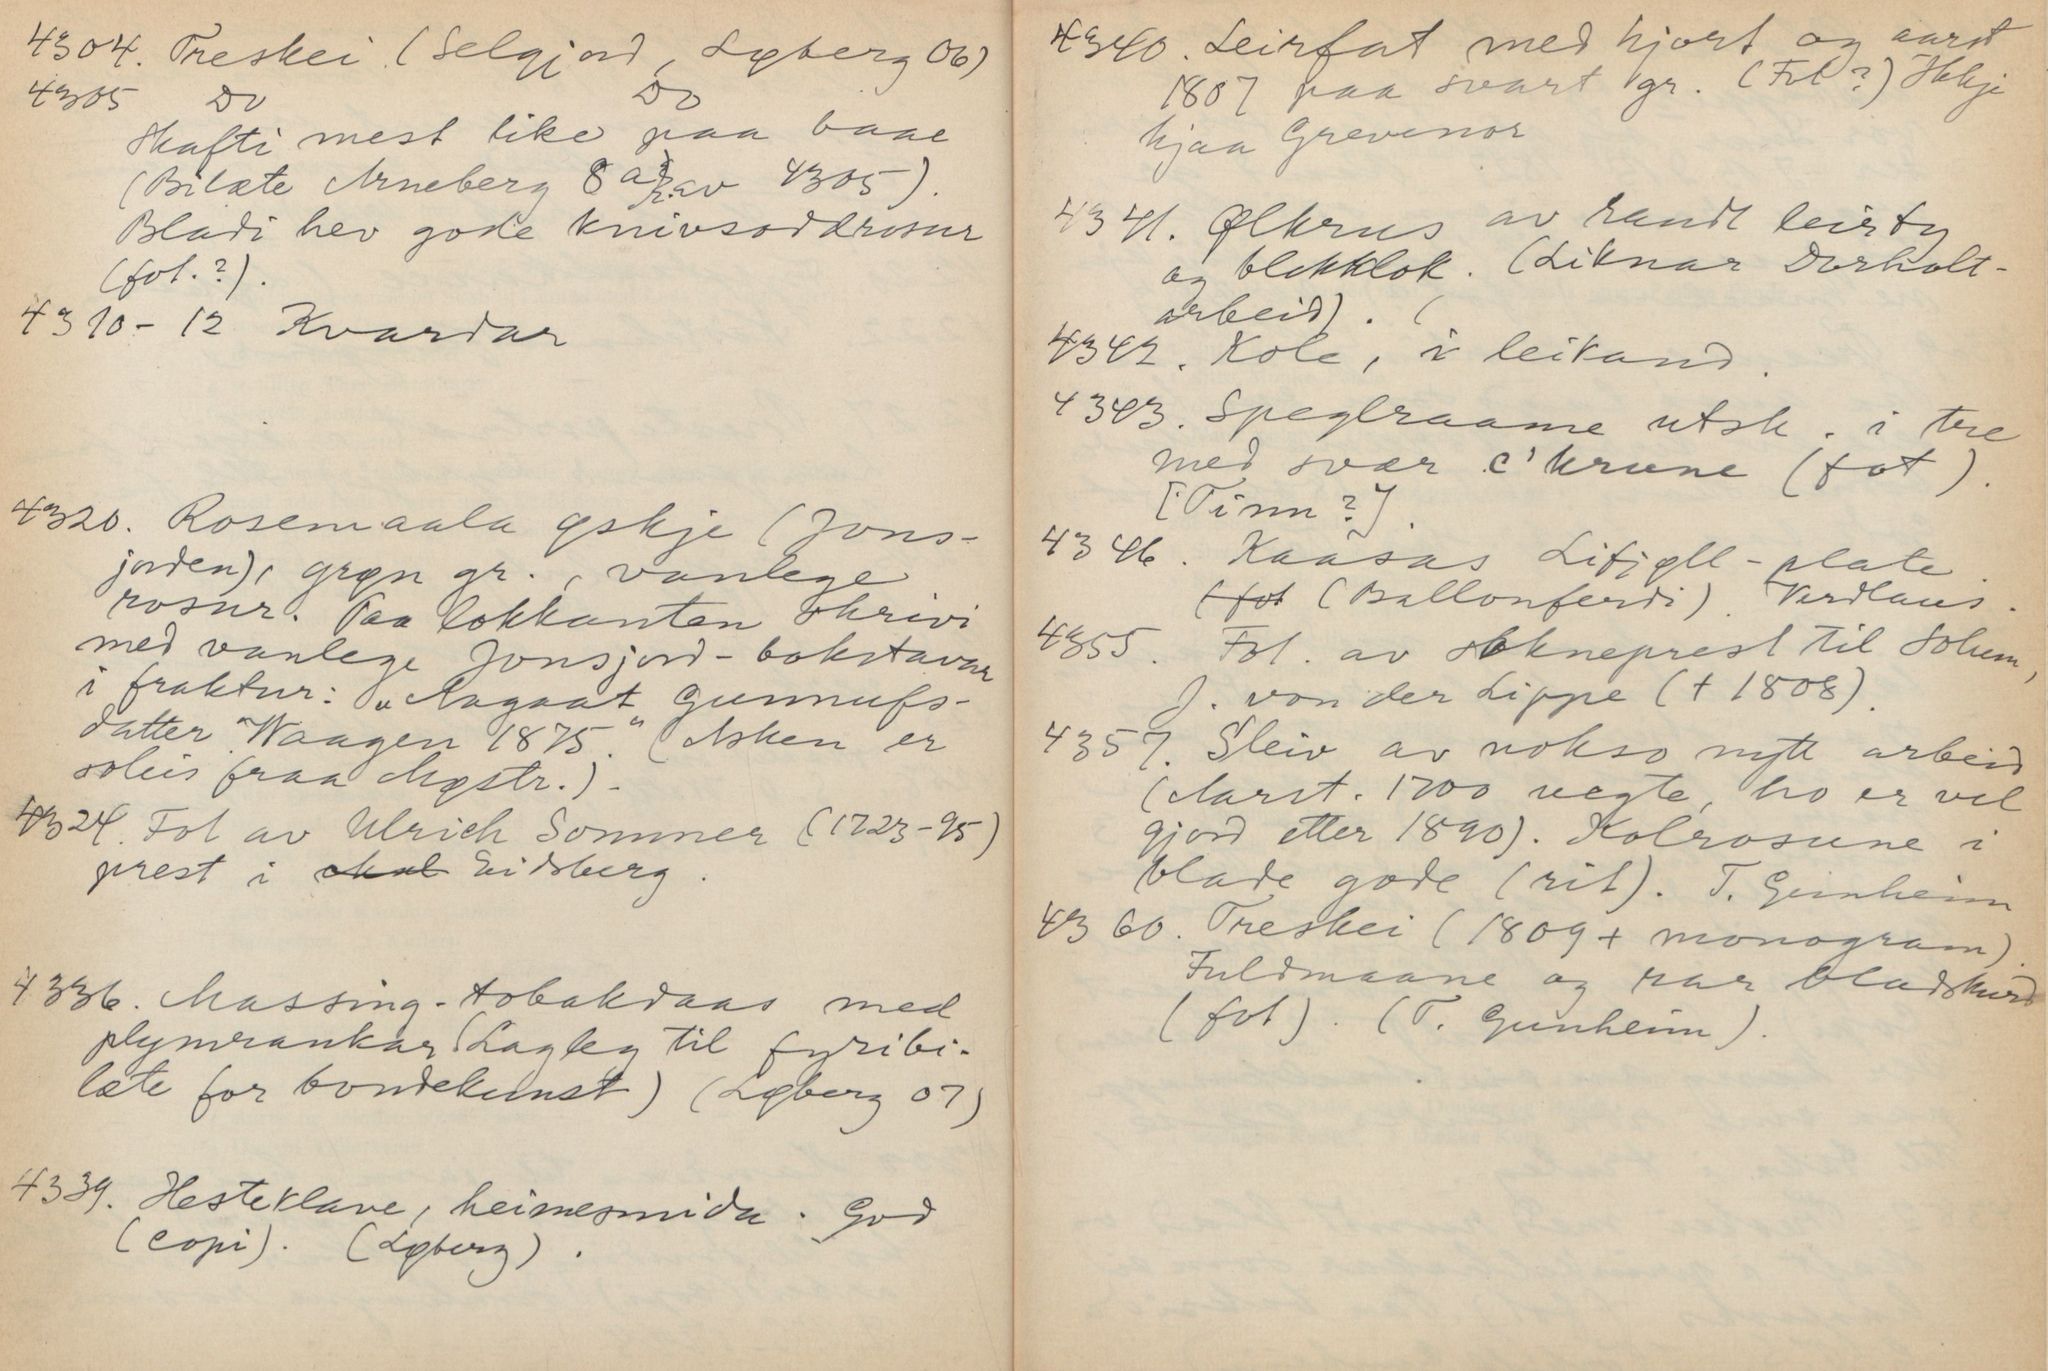 4304. Treskei (Selgjord, Løberg 06)
4305 Do Do
Skafti mest like paa baae
(Bilæte Arneberg 8 a av 4305).
Bladi hev gode knivsoddrosur
(fot.?).
4310-12 Kvardar
4320. Rosemaala øskje (Jons-
jorden), grøn gr., vanlege
rosur. Paa lokkanten skrivi
med vanlege Jonsjord-bokstavar
i fraktur: „Aagaat Gunnufs-
datter Waagen 1875." (Asken er
soleis fraa Møstr.).
4324. Fot av Ulrich Sommer (1723-95)
prest i Eidsberg.
4336. Massing-tobakdaas med
plymrankar (Lagleg til fyribi-
læte for bondekunst) (Løberg 07)
4339. Hesteklave, heimesmida. God
(copi). (Løberg).
4340. Leirfat med hjort og aarst
1807 paa svart gr. (Fot?)
hjaa Grevenor
4341. Ølkrus av raudt leirty
og blekklok. (Liknar Dorholt-
arbeid). (
4342. Kole, i leikand.
4343. Speglraame utsk. i tre
med svær c' krune (fot).
[Tinn?].
4346. Kaasas Lifjell-plate.
(fot (Ballonferdi). Verdlaus.
4355. Fot. av sokneprest til Solum,
J. von der Lippe (+ 1808).
4357. Sleiv av nokso nytt arbeid
(Aarst. 1700 uegte, ho er vel
gjord etter 1890). Kolrosune i
blade gode (rit). T. Gunheim
4360. Treskei (1809 + monogram).
Fuldmaane og rar bladskurd
(fot). (T. Gunheim).